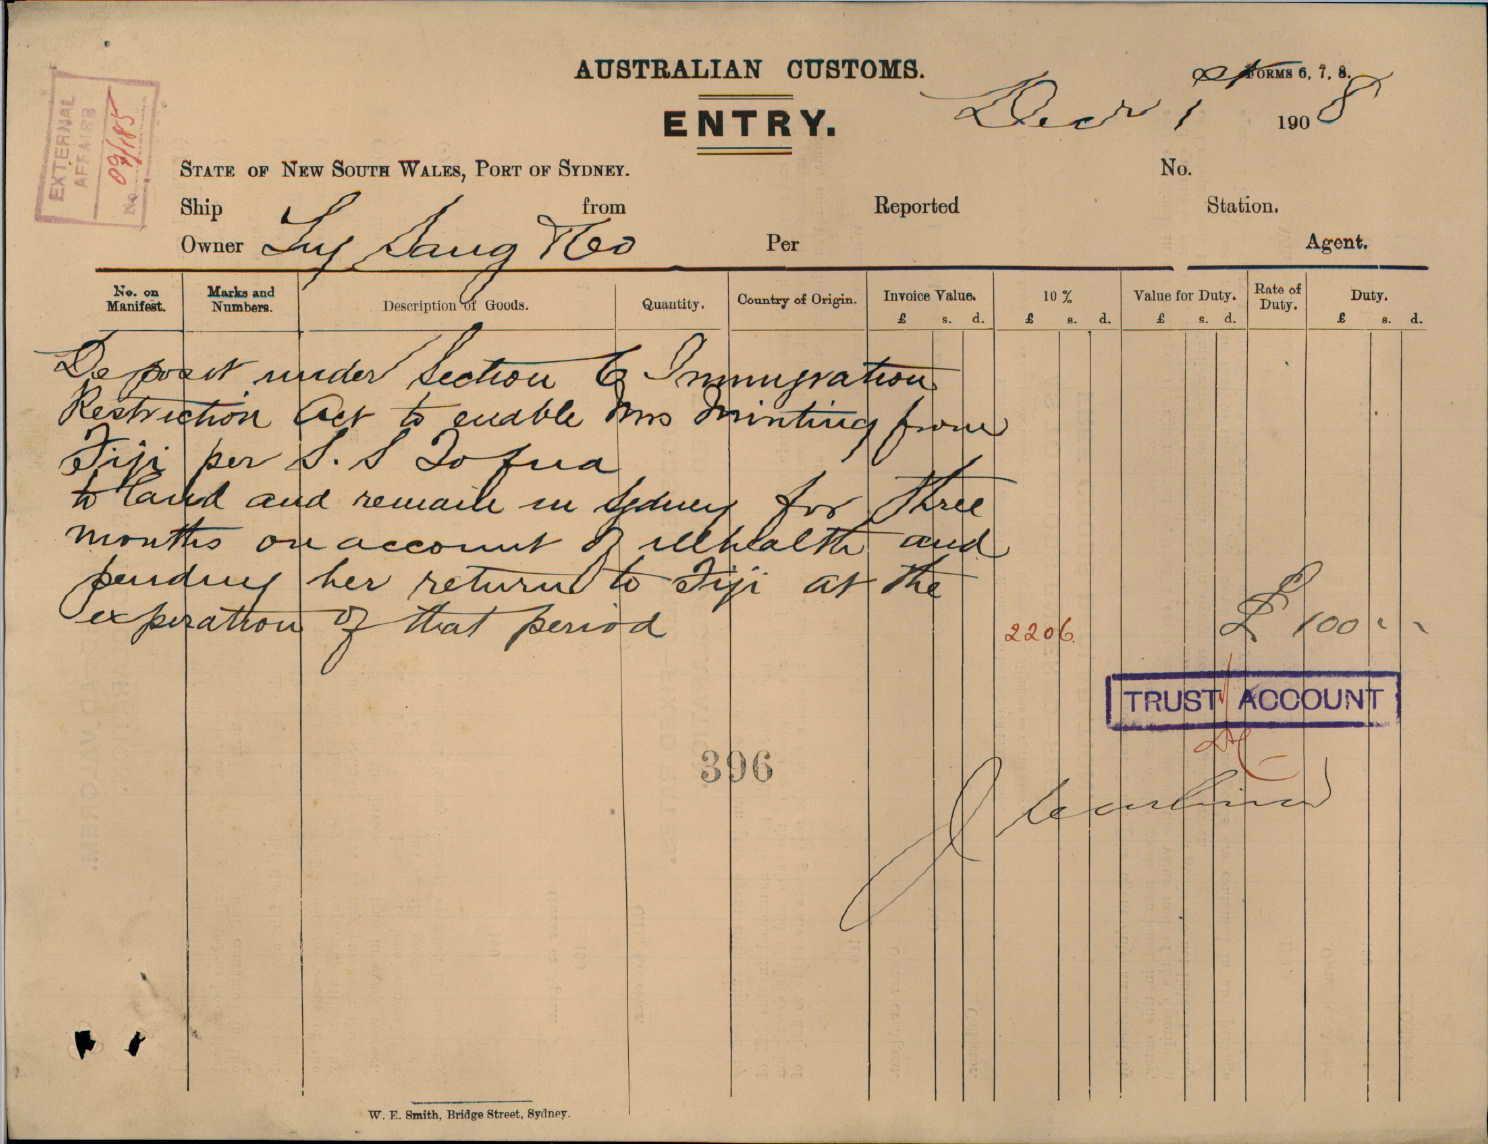 AUSTRALIAN CUSTOMS.
FORMS 6, 7, 8.
ENTRY.
Decr 1st 1908
EXTERNAL AFFAIRS
No 09/185
STATE OF NEW SOUTH WALES, PORT OF SYDNEY.
No.
Ship from Reported Station.
Owner Sang Per Agent.
No. on Manifest. Marks and Numbers. Description of Goods. Quantity. Country of Origin. Invoice Value. 10 % Value for Duty. Rate of Duty. Duty.
£ s. d. £ s. d. £ s. d. £ s. d.
Deposit under Section 6 Immigration
Restriction Act to enable Mrs Minting from
Fiji per S. S Tofua
to land and remain in Sydney for three
months on account of illhealth and
pending her return to Fiji at the
expiration of that period
2206 £ 100 - -
TRUST ACCOUNT
396
W. E. Smith, Bridge Street, Sydney.